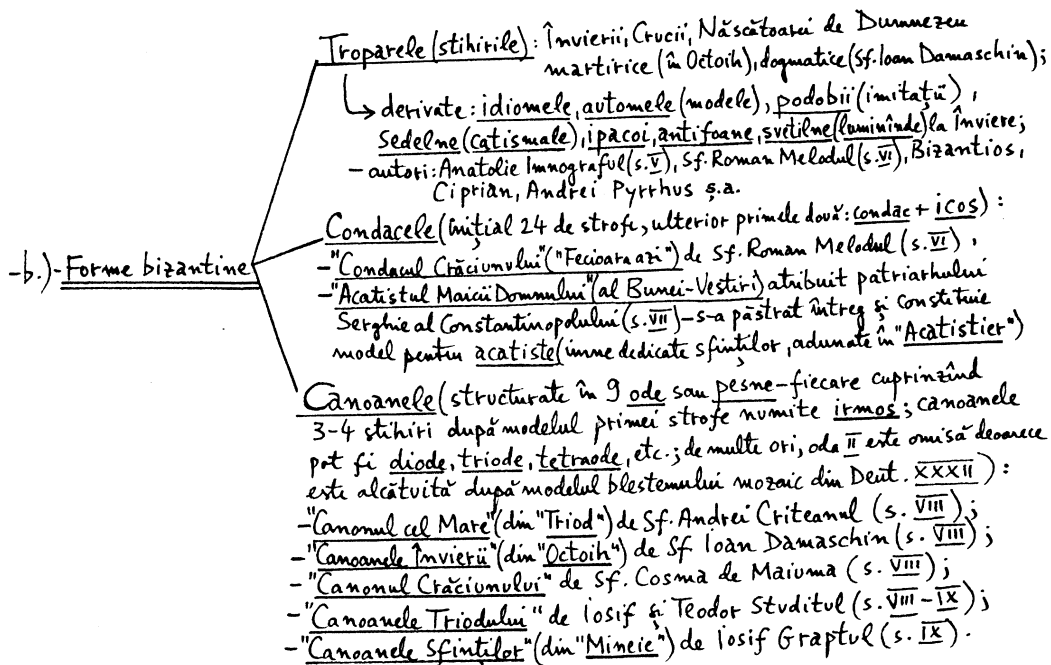 Troparele (stihirile): Învierii, Crucii, Născătoarei de Dumnezeu
martirice (în Octoih), dogmatice (Sf. Ioan Damaschin);
→ derivate: idiomele, automele (modele), podobii (imitații),
Sedelne (catismale), ipacoi, antifoane, svetilne (luminînde) la Înviere;
- autori: Anatolie Imnograful (s. V), Sf. Roman Melodul (s. VI), Bizantios,
Ciprian, Andrei Pyrrhus ș.a.
-b.)- Forme bizantine
Condacele (inițial 24 de strofe, ulterior primele două: condac + icos):
- "Condacul Crăciunului" ("Fecioara azi") de Sf. Roman Melodul (s. VI),
- "Acatistul Maicii Domnului" (al Bunei-Vestiri) atribuit patriarhului
Serghie al Constantinopolului (s. VII) - s-a păstrat întreg și constituie
model pentru acatiste (imne dedicate sfinților, adunate în "Acatistier")
Canoanele (structurate în 9 ode sau pesne - fiecare cuprinzînd
3-4 stihiri după modelul primei strofe numite irmos; canoanele
pot fi diode, triode, tetraode, etc.; de multe ori, oda II este omisă deoarece
este alcătuită după modelul blestemului mozaic din Deut. XXXII):
- "Canonul cel Mare" (din "Triod") de Sf. Andrei Criteanul (s. VIII);
- "Canoanele Învierii" (din "Octoih") de Sf Ioan Damaschin (s. VIII);
- "Canonul Crăciunului" de Sf. Cosma de Maiuma (s. VIII);
- "Canoanele Triodului" de Iosif și Teodor Studitul (s. VIII-IX);
- "Canoanele Sfinților" (din "Mineie") de Iosif Graptul (s. IX).